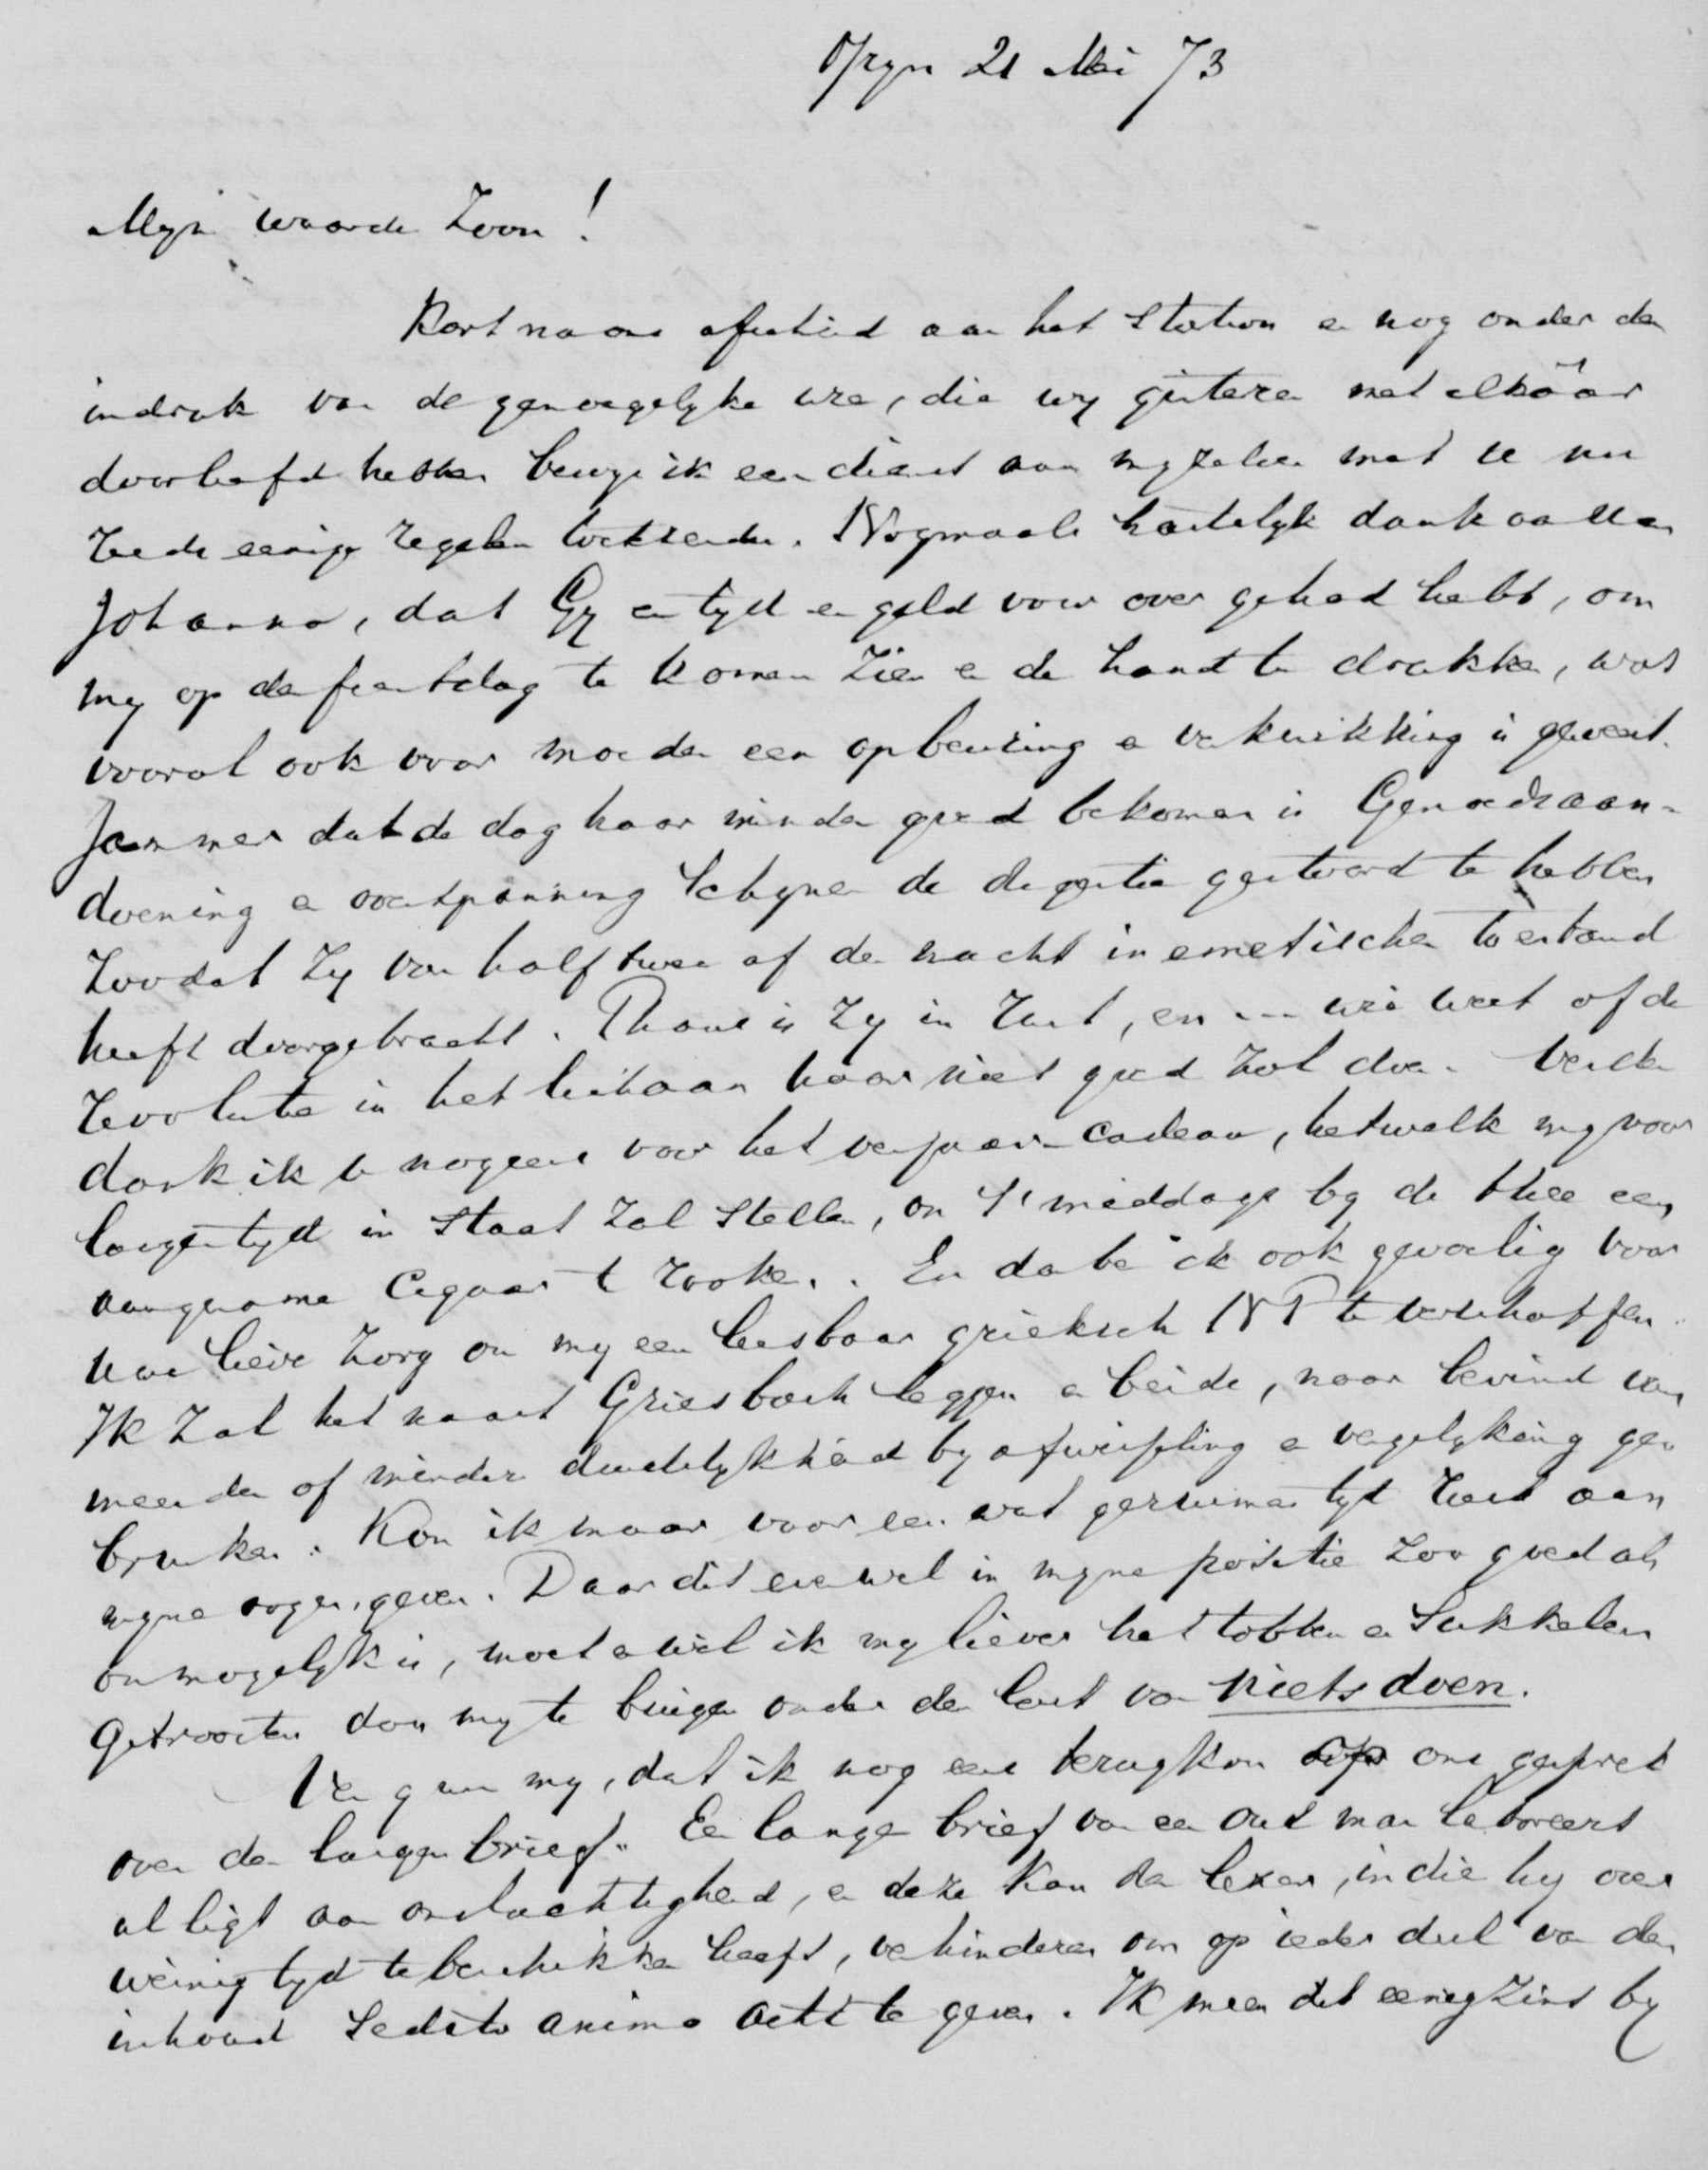 O/rijn 21 Mei 73
Mijn waarde Zoon!
Kort na ons afscheid aan het Station en nog onder den
indruk van de genoegelyke ure, die wy gisteren met elkaar
doorleefd hebben bewys ik een dienst aan my zelven met U nu
reeds eenige regelen toetezenden. Nogmaals hartelyk dank aan U en
Johanna, dat Gy en tyd en geld voor over gehad hebt, om
my op den feestdag te komen zien en de hand te drukken, wat
vooral ook voor moeder een opbeuring en verkwikking is geweest.
Jammer dat de dag haar minder goed bekomen is Gemoedsaan-
doening en overspanning schynen de digestie gestoord te hebben
zoodat zy van half twee af de nacht in emetischen toestand
heeft doorgebracht. Thans is zy in rust, en --- wie weet of de
revolutie in het lichaam haar niet goed zal doen. Verder
dank ik U nogeens voor het verjaar-cadeau, hetwelk my voor
langen tyd in staat zal stellen, om 's middags by de thee een
aangename Cigaar te rooken. En dan ben ik ook gevoelig voor
uwe lieve zorg om my een leesbaar grieksch NT te verschaffen.
Ik zal het naast Griesbach leggen en beide, naar bevind van
meerder of minder duidelykheid by afwisseling en vergelyking ge-
bruiken. Kon ik maar voor een wat geruimen tyd rust aan
myne oogen geven. Daar dit evenwel in myne positie zoo goed als
onmogelyk is, moet en wil ik my liever het tobben en sukkelen
getroosten dan my te buigen onder den last van niets doen.
Vergun my, dat ik nog eens terugkom op ons gesprek
over den langen brief. Een lange brief van een oud man laboreert
al ligt aan onduchtigheid, en deze kan den lezer, indien hy over
weinig tyd te beschikken heeft, verhinderen om op ieder deel van den
inhoud sedato animo acht te geven. Ik meen dit eenigzins by